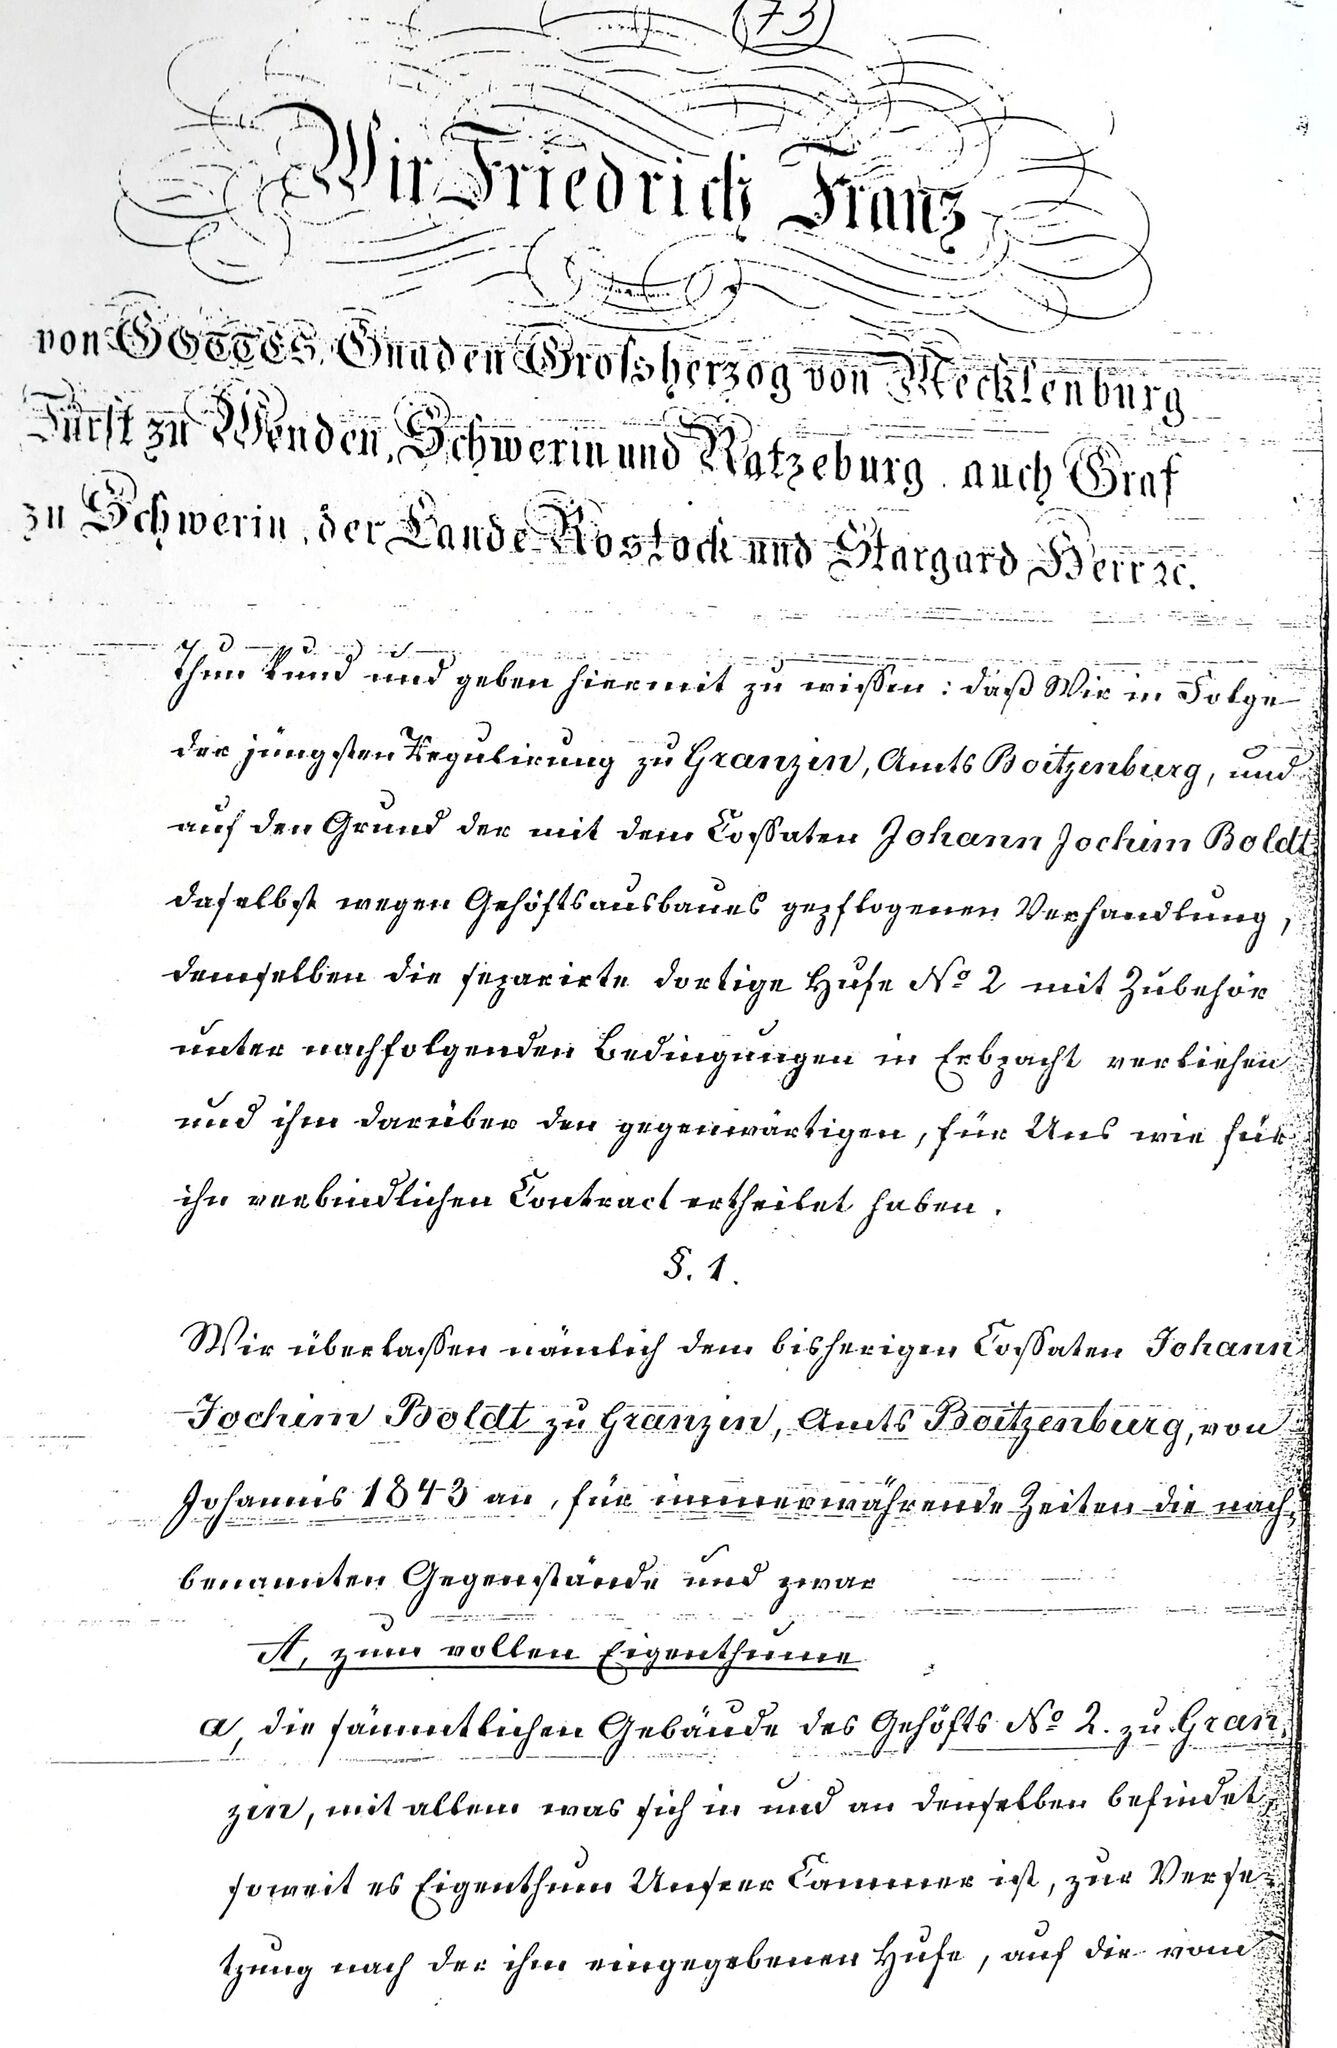 (73)
Wir Friedrich Franz
von GOTTES Gnaden Grossherzog von Mecklenburg
Fürst zu Wenden, Schwerin und Ratzeburg auch Graf
zu Schwerin, der Lande Rostock und Stargard Herr ꝛc.
Thun kund und geben hiermit zu wissen: daß Wir in Folge
der jüngsten Regulirung zu Granzin, Amts Boitzenburg, und
auf den Grund der mit dem Cossaten Johann Jochim Boldt
daselbst wegen Gehöftsausbaues gepflogenen Verhandlung,
demselben die separirte dortige Hufe No 2 mit Zubehör
unter nachfolgenden Bedingungen in Erbpacht verliehen
und ihm darüber den gegenwärtigen, für Uns wie für
ihn verbindlichen Contract ertheilet haben.
§. 1.
Wir überlassen nämlich dem bisherigen Cossaten Johann
Jochim Boldt zu Granzin, Amts Boitzenburg, von
Johannis 1843 an, für immerwährende Zeiten die nach-
benannten Gegenstände und zwar
A, zum vollen Eigenthume
a, die sämmtlichen Gebäude des Gehöfts No 2. zu Gran-
zin, mit allem was sich in und an denselben befindet,
soweit es Eigenthum Unserer Cammer ist, zur Verse-
tzung nach der ihm eingegebenen Hufe, auf die vom